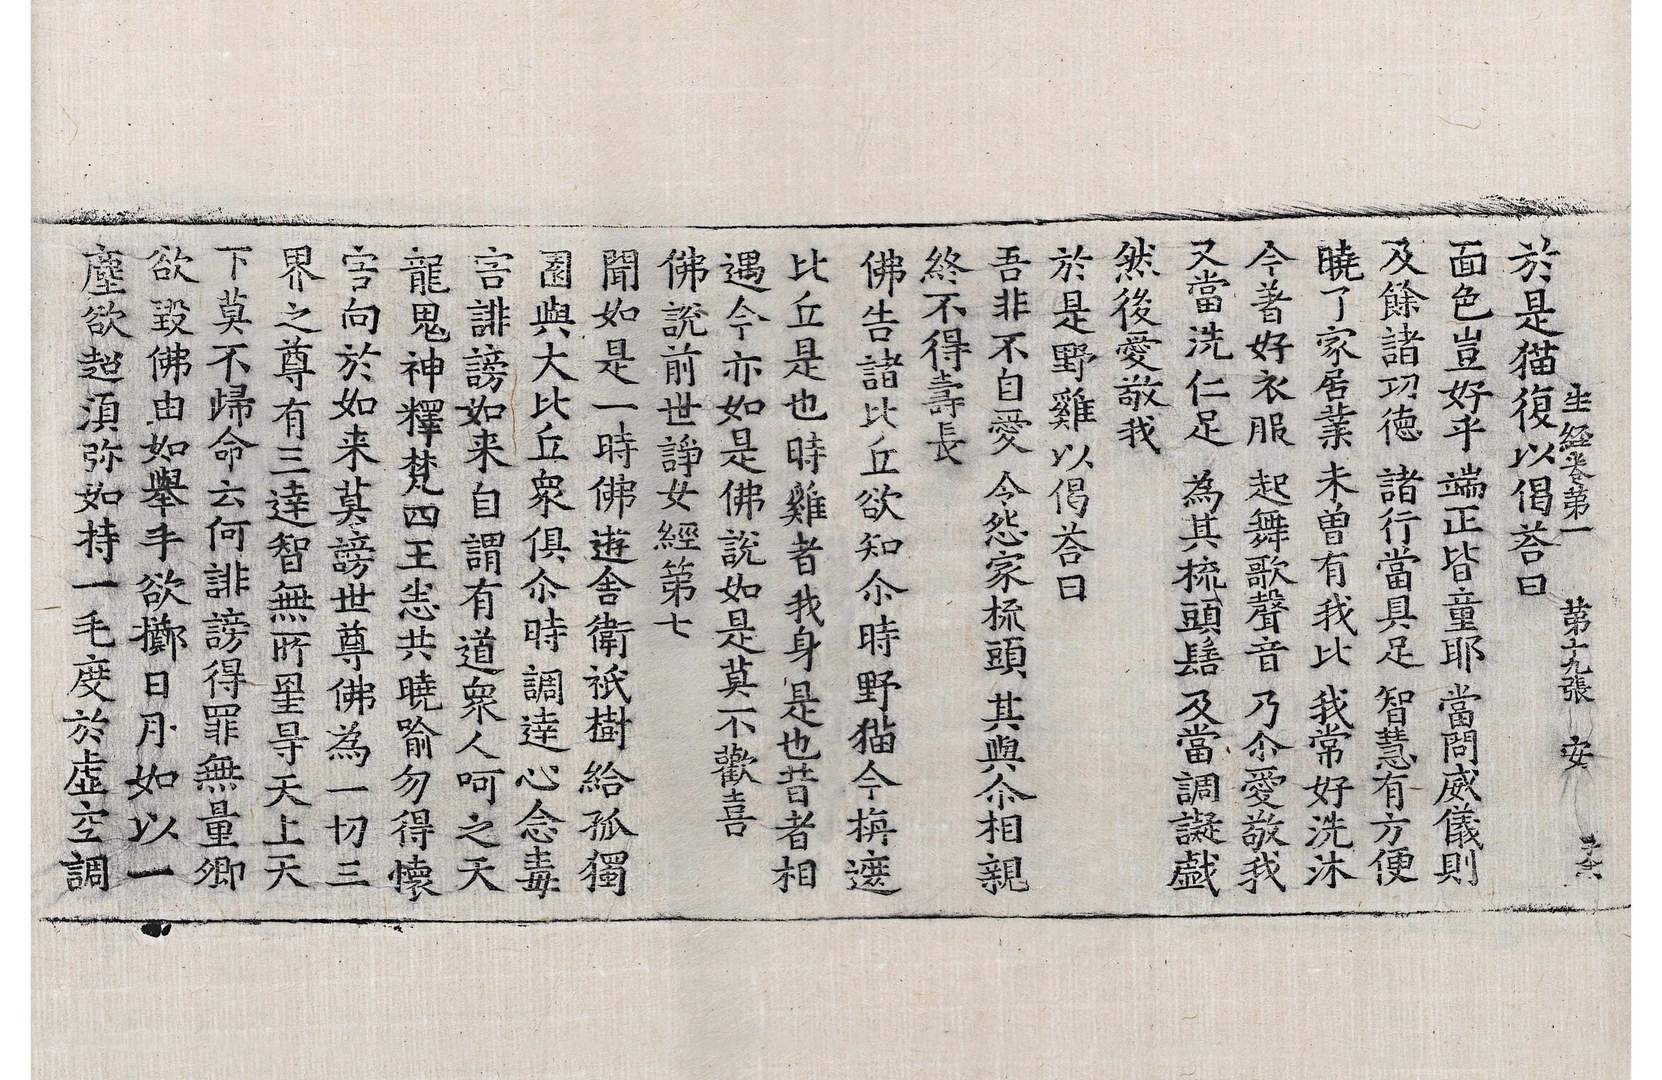 生經卷第一 第十九張 安
於是猫復以偈荅曰
面色豈好乎 端正皆童耶 當問威儀則
及餘諸功德 諸行當具足 智慧有方便
曉了家居業 未曾有我比 我常好洗沐
今著好衣服 起舞歌聲音 乃尒愛敬我
又當洗仁足 為其梳頭髻 及當調譺戲
然後愛敬我
於是野雞以偈荅曰
吾非不自愛 令怨家梳頭 其與尒相親
終不得壽長
佛告諸比丘欲知尒時野猫今栴遮
比丘是也時雞者我身是也昔者相
遇今亦如是佛說如是莫不歡喜
佛說前世諍女經第七
聞如是一時佛遊舍衛祇樹給孤獨
園與大比丘衆俱尒時調達心念毒
害誹謗如来自謂有道衆人呵之天
龍鬼神釋梵四王悉共曉喻勿得懷
害向於如来莫謗世尊佛為一切三
界之尊有三達智無所罣导天上天
下莫不歸命云何誹謗得罪無量卿
欲毀佛由如舉手欲擲日月如以一
塵欲超湏弥如持一毛度於虛空調